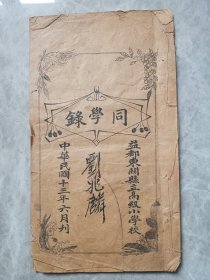 益都東關縣立高級小學校
同學錄
劉兆麟
中華民國十三年六月刋